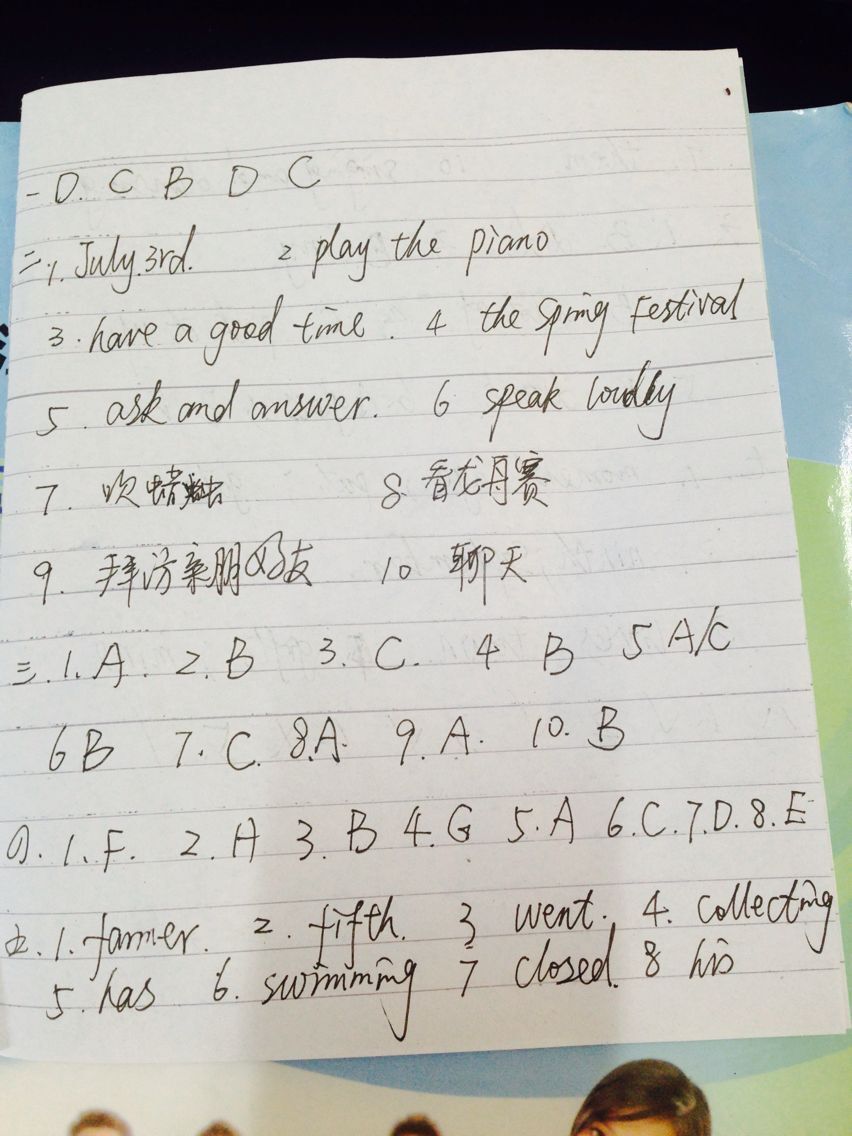 一 D. C B D C
二 1. July.3rd. 2 play the piano
3. have a good time. 4 the Spring Festival
5. ask and answer. 6 speak loudly
7. 吹蜡烛 8. 看龙舟赛
9. 拜访亲朋好友 10 聊天
三. 1. A. 2. B 3. C. 4 B 5 A/C
6 B 7. C. 8. A. 9. A. 10. B
四. 1. F. 2. H 3. B 4. G 5. A 6. C. 7. D. 8. E
五. 1. farmer. 2. fifth. 3 went. 4. collecting
5. has 6. swimming 7 closed. 8 his